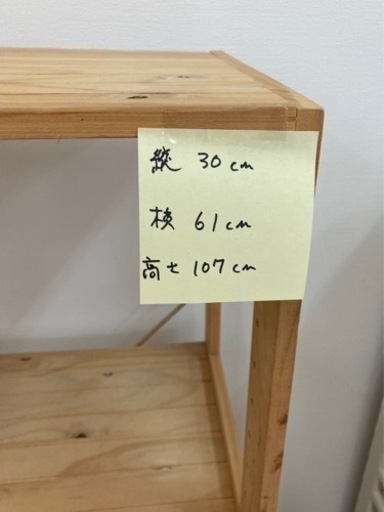 縦 30cm
横 61cm
高さ 107cm